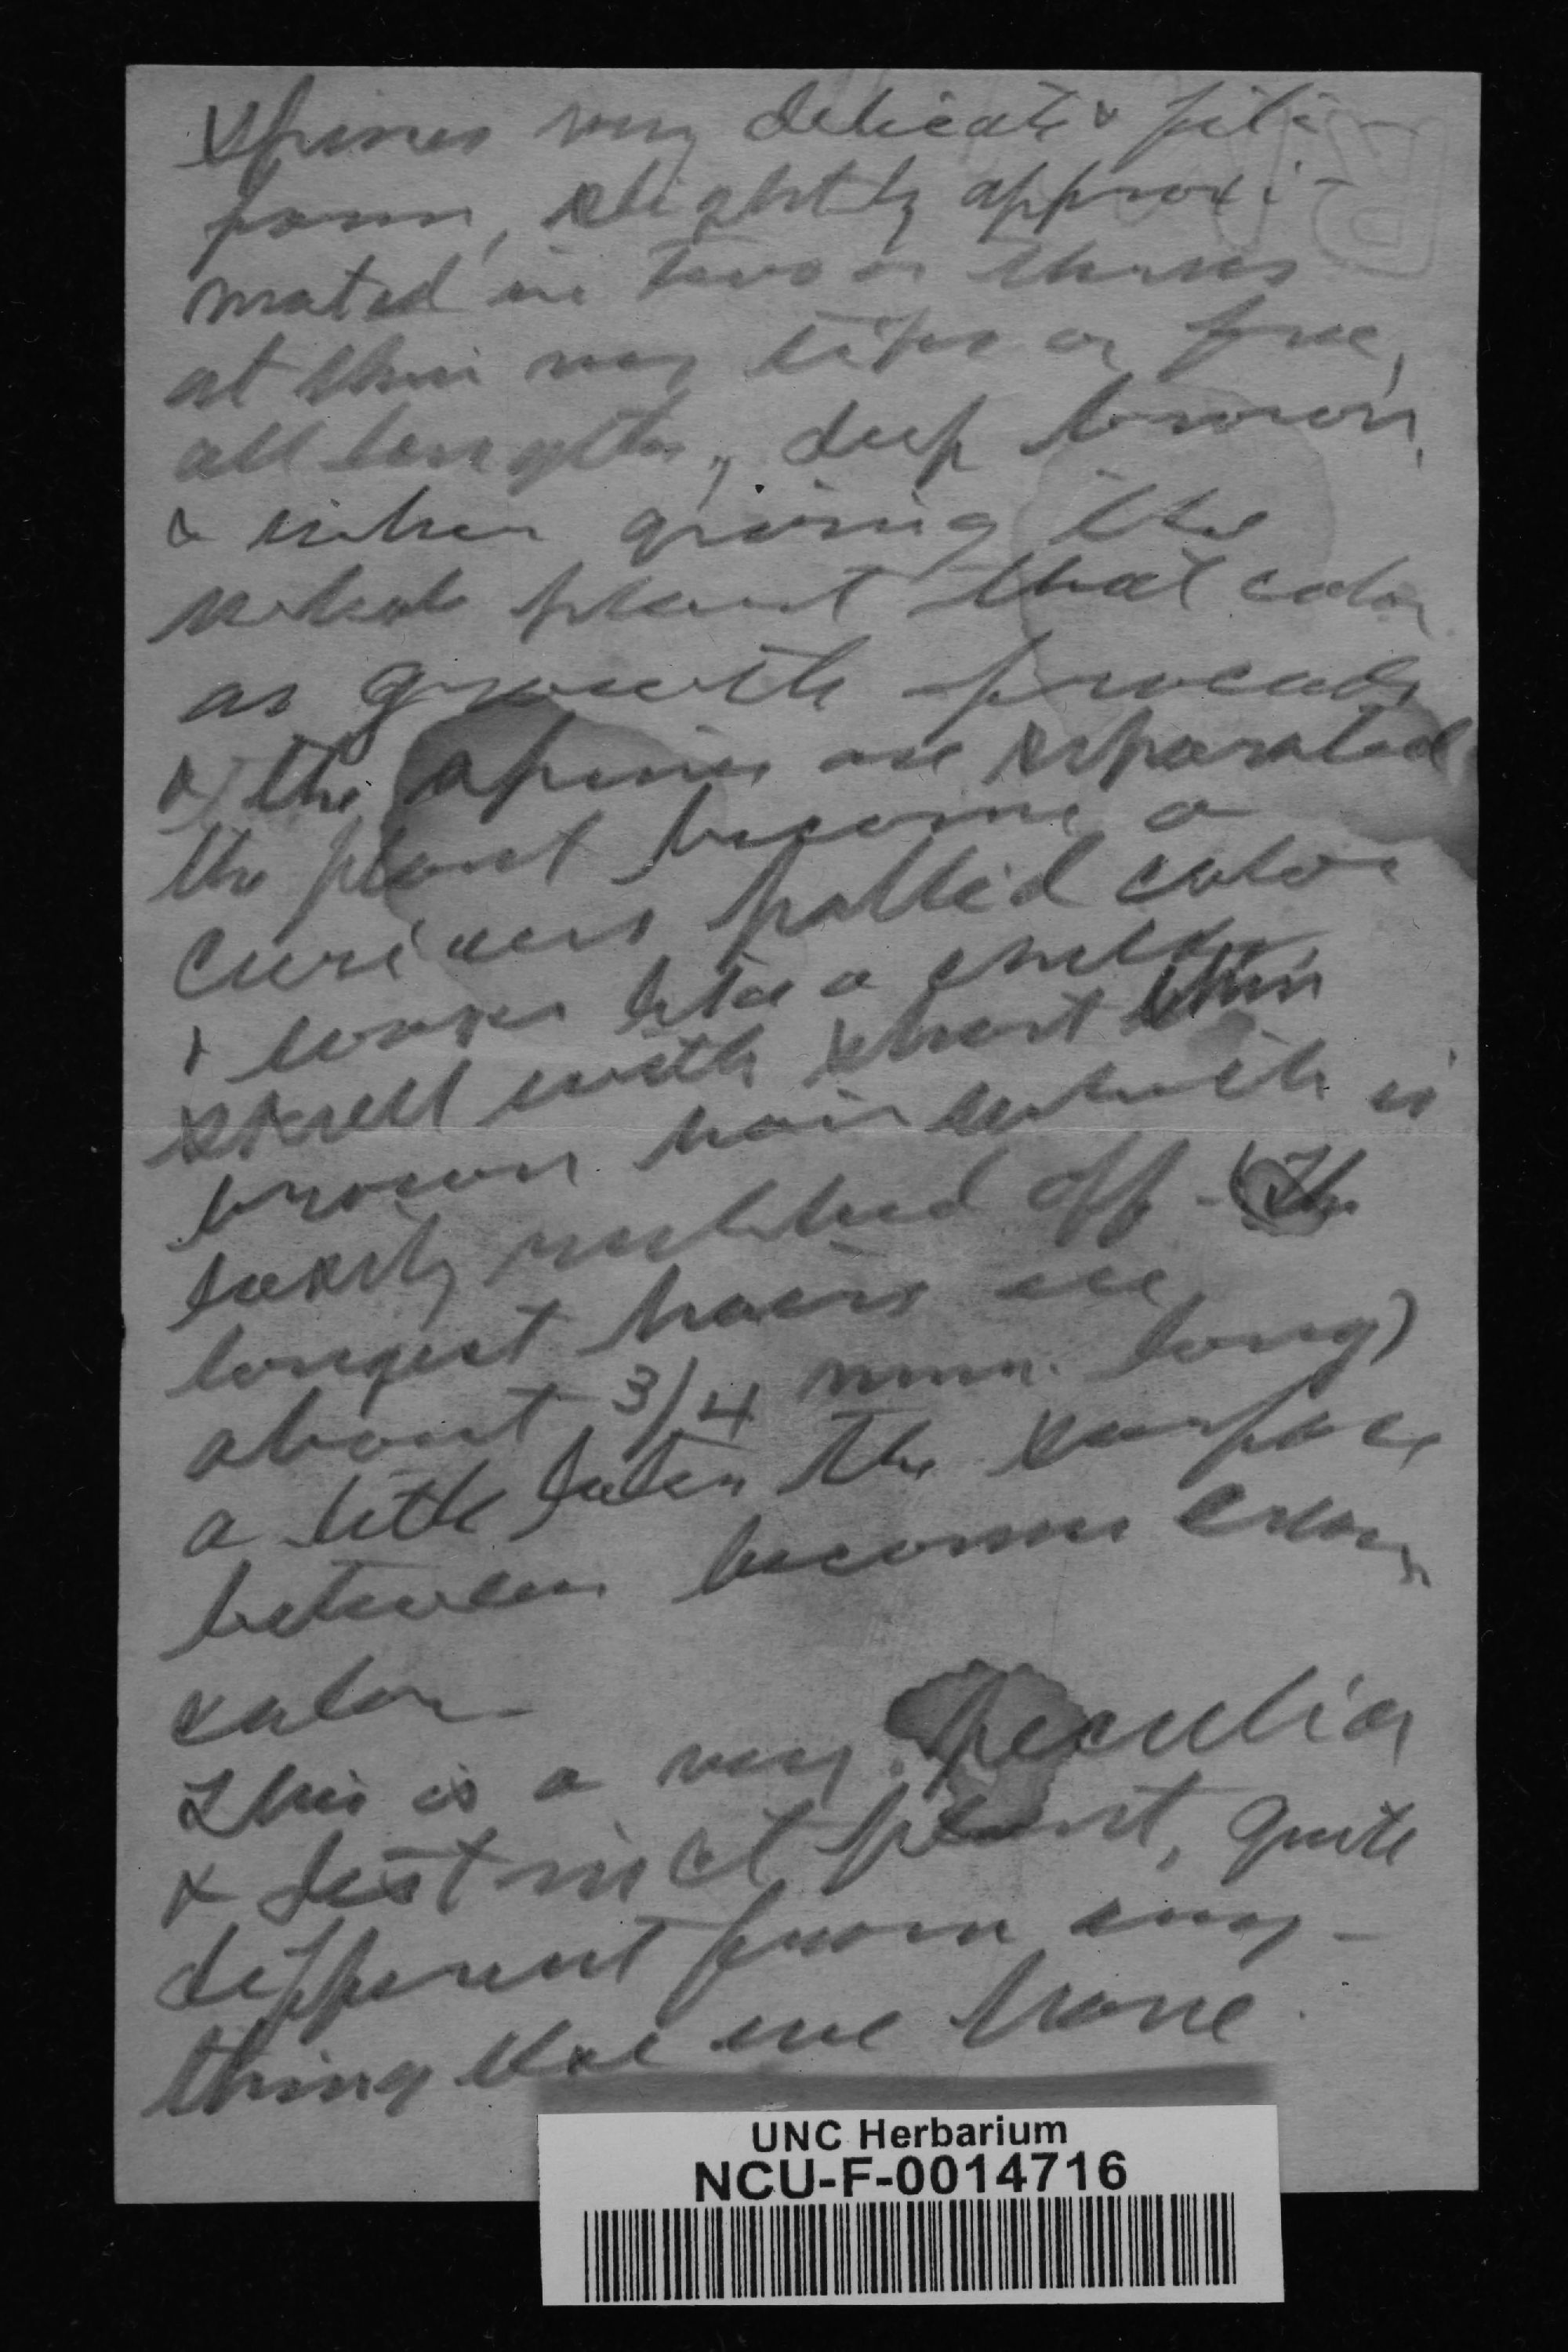 Spines very delicate & fili-
form, slightly approxi-
mated in twos or threes
at their very tips or free,
all lengths, deep brown,
& when young the
whole plant that color
as growth proceeds
& the spines are separated
the plant become a
curious pallid color
& looks like a childs
skull with short thin
brown hair which is
easily rubbed off - (The
longest hairs are
about 3/4 mm. long)
a little later the surface
between becomes creamy
color -
This is a very peculiar
& distinct plant, quite
different from any-
thing else we have.
UNC Herbarium
NCU-F-0014716